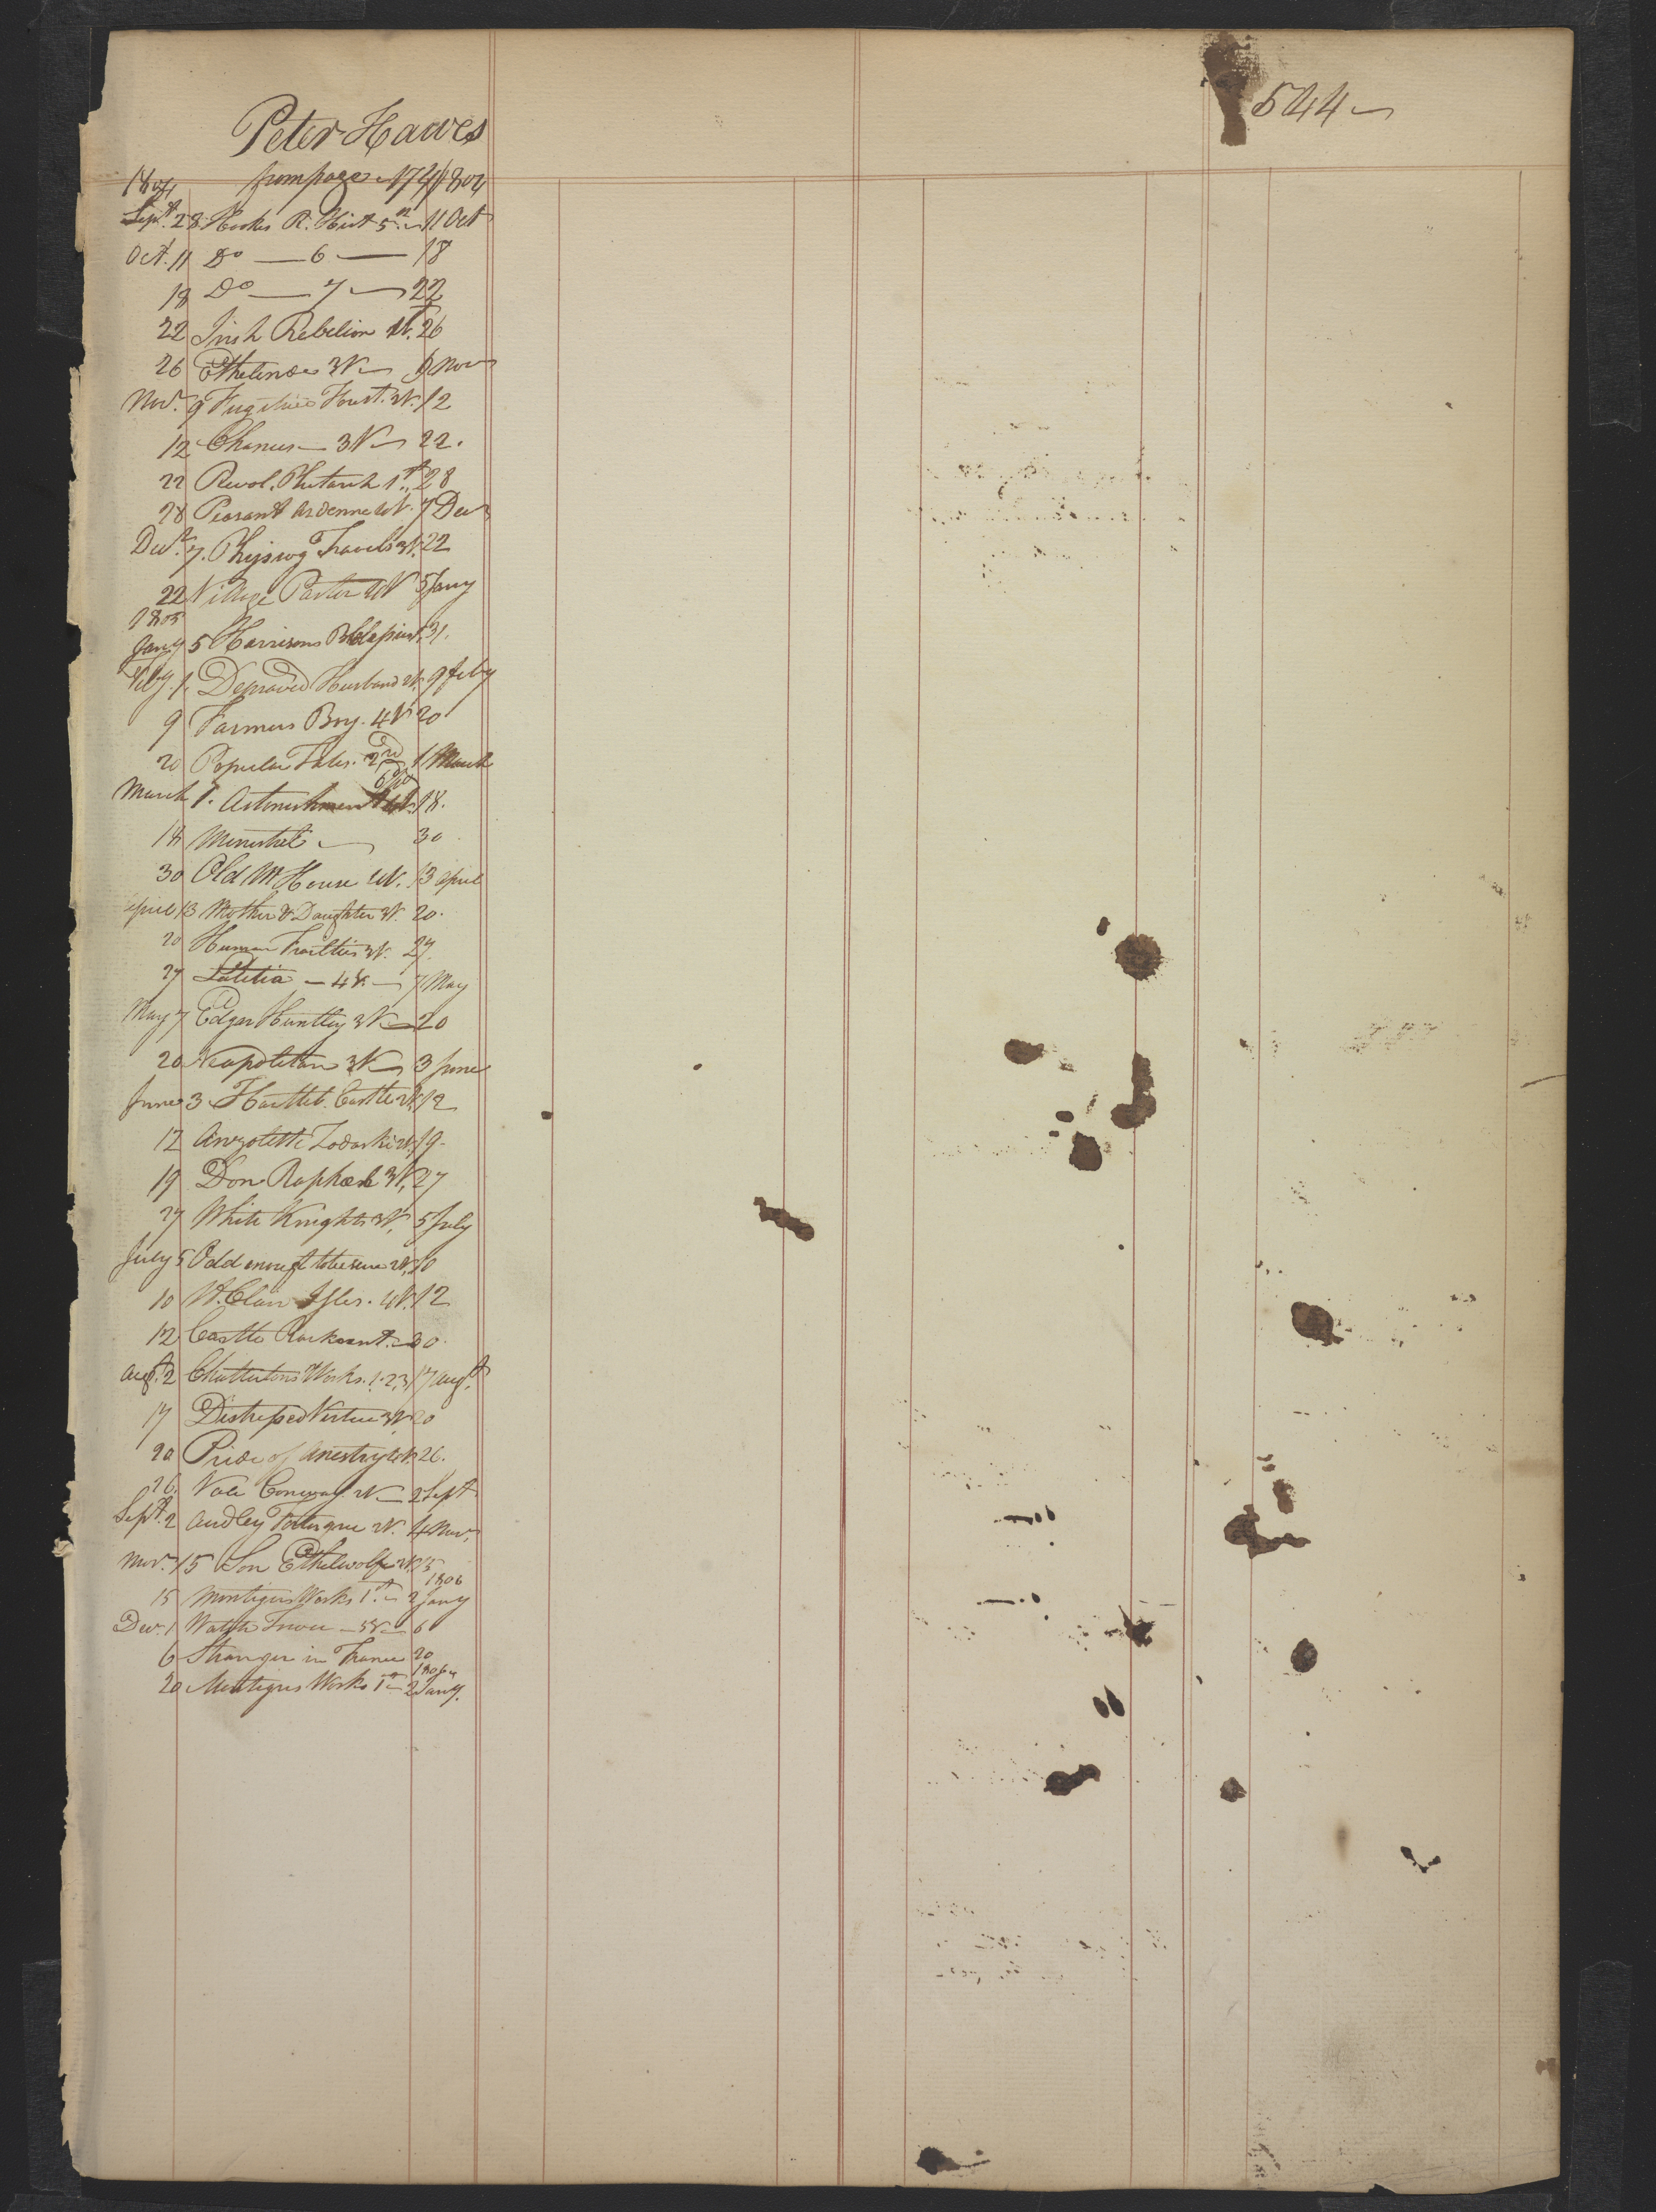 544
Peter Hawes
1804 from page 174 1804
Sept. 28 Hookes R. Hist 5th 11 Oct
Oct. 11 Do — 6 — 18
18 Do — 7 — 22
22 Irish Rebelion 26
26 Ethelinde 3V 9 Nov
Nov. 9 Fugitive 12
12 3V 22.
22 Revol. Plutarch 1st 28
28 Peasant Ardenne 7 Dec
Decr. 7. Physiog Travels 3V. 22
22 Village Pastor 5 Jany
1805
Jany 5 Harrisons 31.
Feby. 1. Depraved Husband 2V. 9 feby
9 Farmers Boy. 4V 20
20 Popular Tales. 2nd 1 March
March 1. Astonishment 18.
18 Minstrel 30
30 Old M House 4V. 13 april
april 13 Mother & Daughter 3V. 20.
20 Human Frailties 3V. 27.
27 Letitia — 4V. — 7 May
May 7 Edgar Huntley 3V 20
20 Neapolitan 3V 3 June
June 3 Castle 2V. 12
12 Zodoski 2V. 19.
19 Don Raphael 3V, 27
27 White Knights 3V, 5 July
July 5 Odd enough 2V, 10
10 St. Clair Isles. 4V. 12
12 Castle Rackrent. 30.
Augt. 2 Chattertons Works. 1. 2, 3, 17 augt.
17 Distressed Virtue 3V 20
20 Pride of Anestry 4V 26.
26. Vale Conway. 2 Sept
Sept. 2 Audley 2V. 4 Nov,
Nov. 15 Son Ethelwolf 2V. 15
1806
15 Montigus Works 1st. 2 Jany
Dec. 1 Watch Tower — 5V — 6
6 Stranger in France 20
1806
20 Montigus Works 1st 2 Jany.